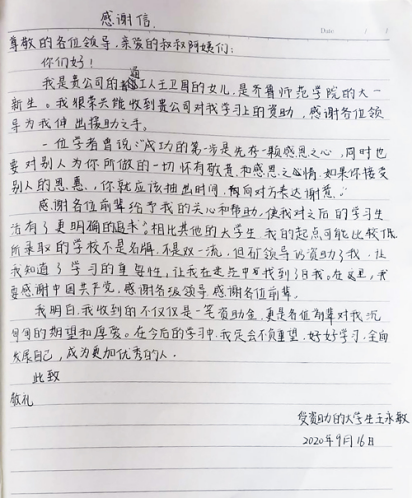 感谢信
Date
尊敬的各位领导、亲爱的叔叔阿姨们：
你们好！
我是贵公司的普通工人王卫国的女儿，是齐鲁师范学院的大一
新生。我很荣幸能收到贵公司对我学习上的资助，感谢各位领
导为我伸出援助之手。
一位学者曾说："成功的第一步是先存一颗感恩之心，同时也
要对别人为你所做的一切怀有敬意和感恩之心情。如果你接受
别人的恩惠，你就应该抽出时间，向对方表达谢意。"
感谢各位前辈给予我的关心和帮助，使我对之后的学习生
活有了更明确的追求。相比其他的大学生，我的起点可能比较低，
所录取的学校不是名牌，不是双一流，但矿领导的资助了我，让
我知道了学习的重要性，让我在迷茫中寻找到了自我。在这里，我
要感谢中国共产党，感谢各级领导，感谢各位前辈。
我明白，我收到的不仅仅是一笔资助金，更是各位前辈对我沉
甸甸的期望和厚爱。在今后的学习中，我定会不负重望，好好学习，全面
发展自己，成为更加优秀的人。
此致
敬礼
受资助的大学生王永敏
2020年9月16日